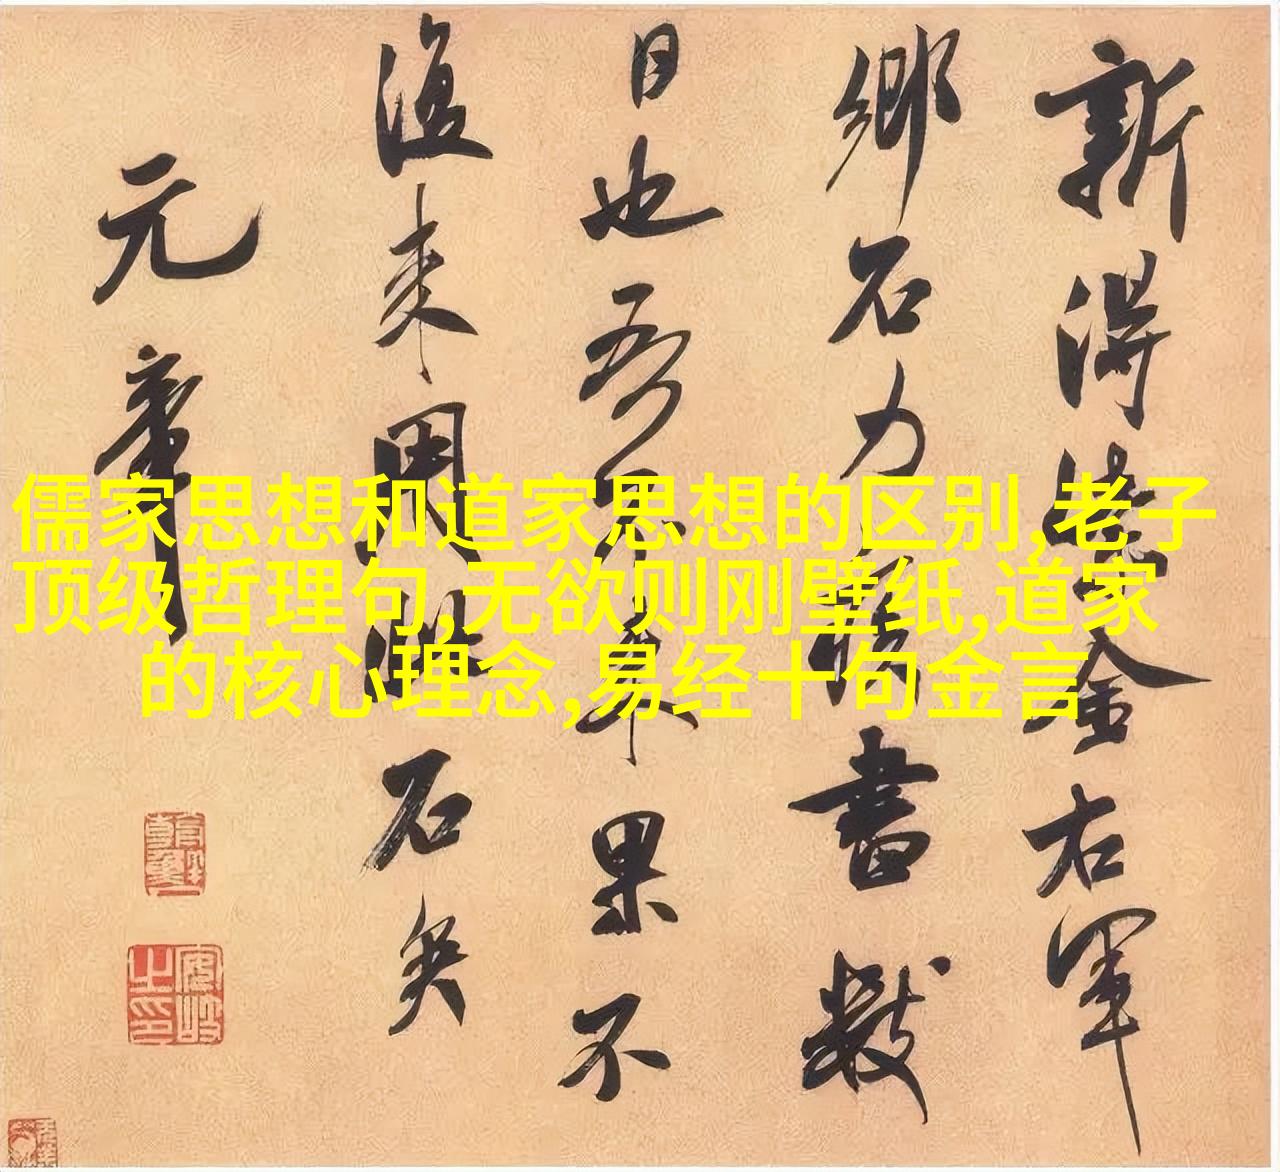 新得紫金右軍
鄉石力疾書數
日也吾不来果不
復来用此石矣
元章
儒家思想和道家思想的区别,老子
顶级哲理句,无欲则刚壁纸,道家
的核心理念,易经十句金言